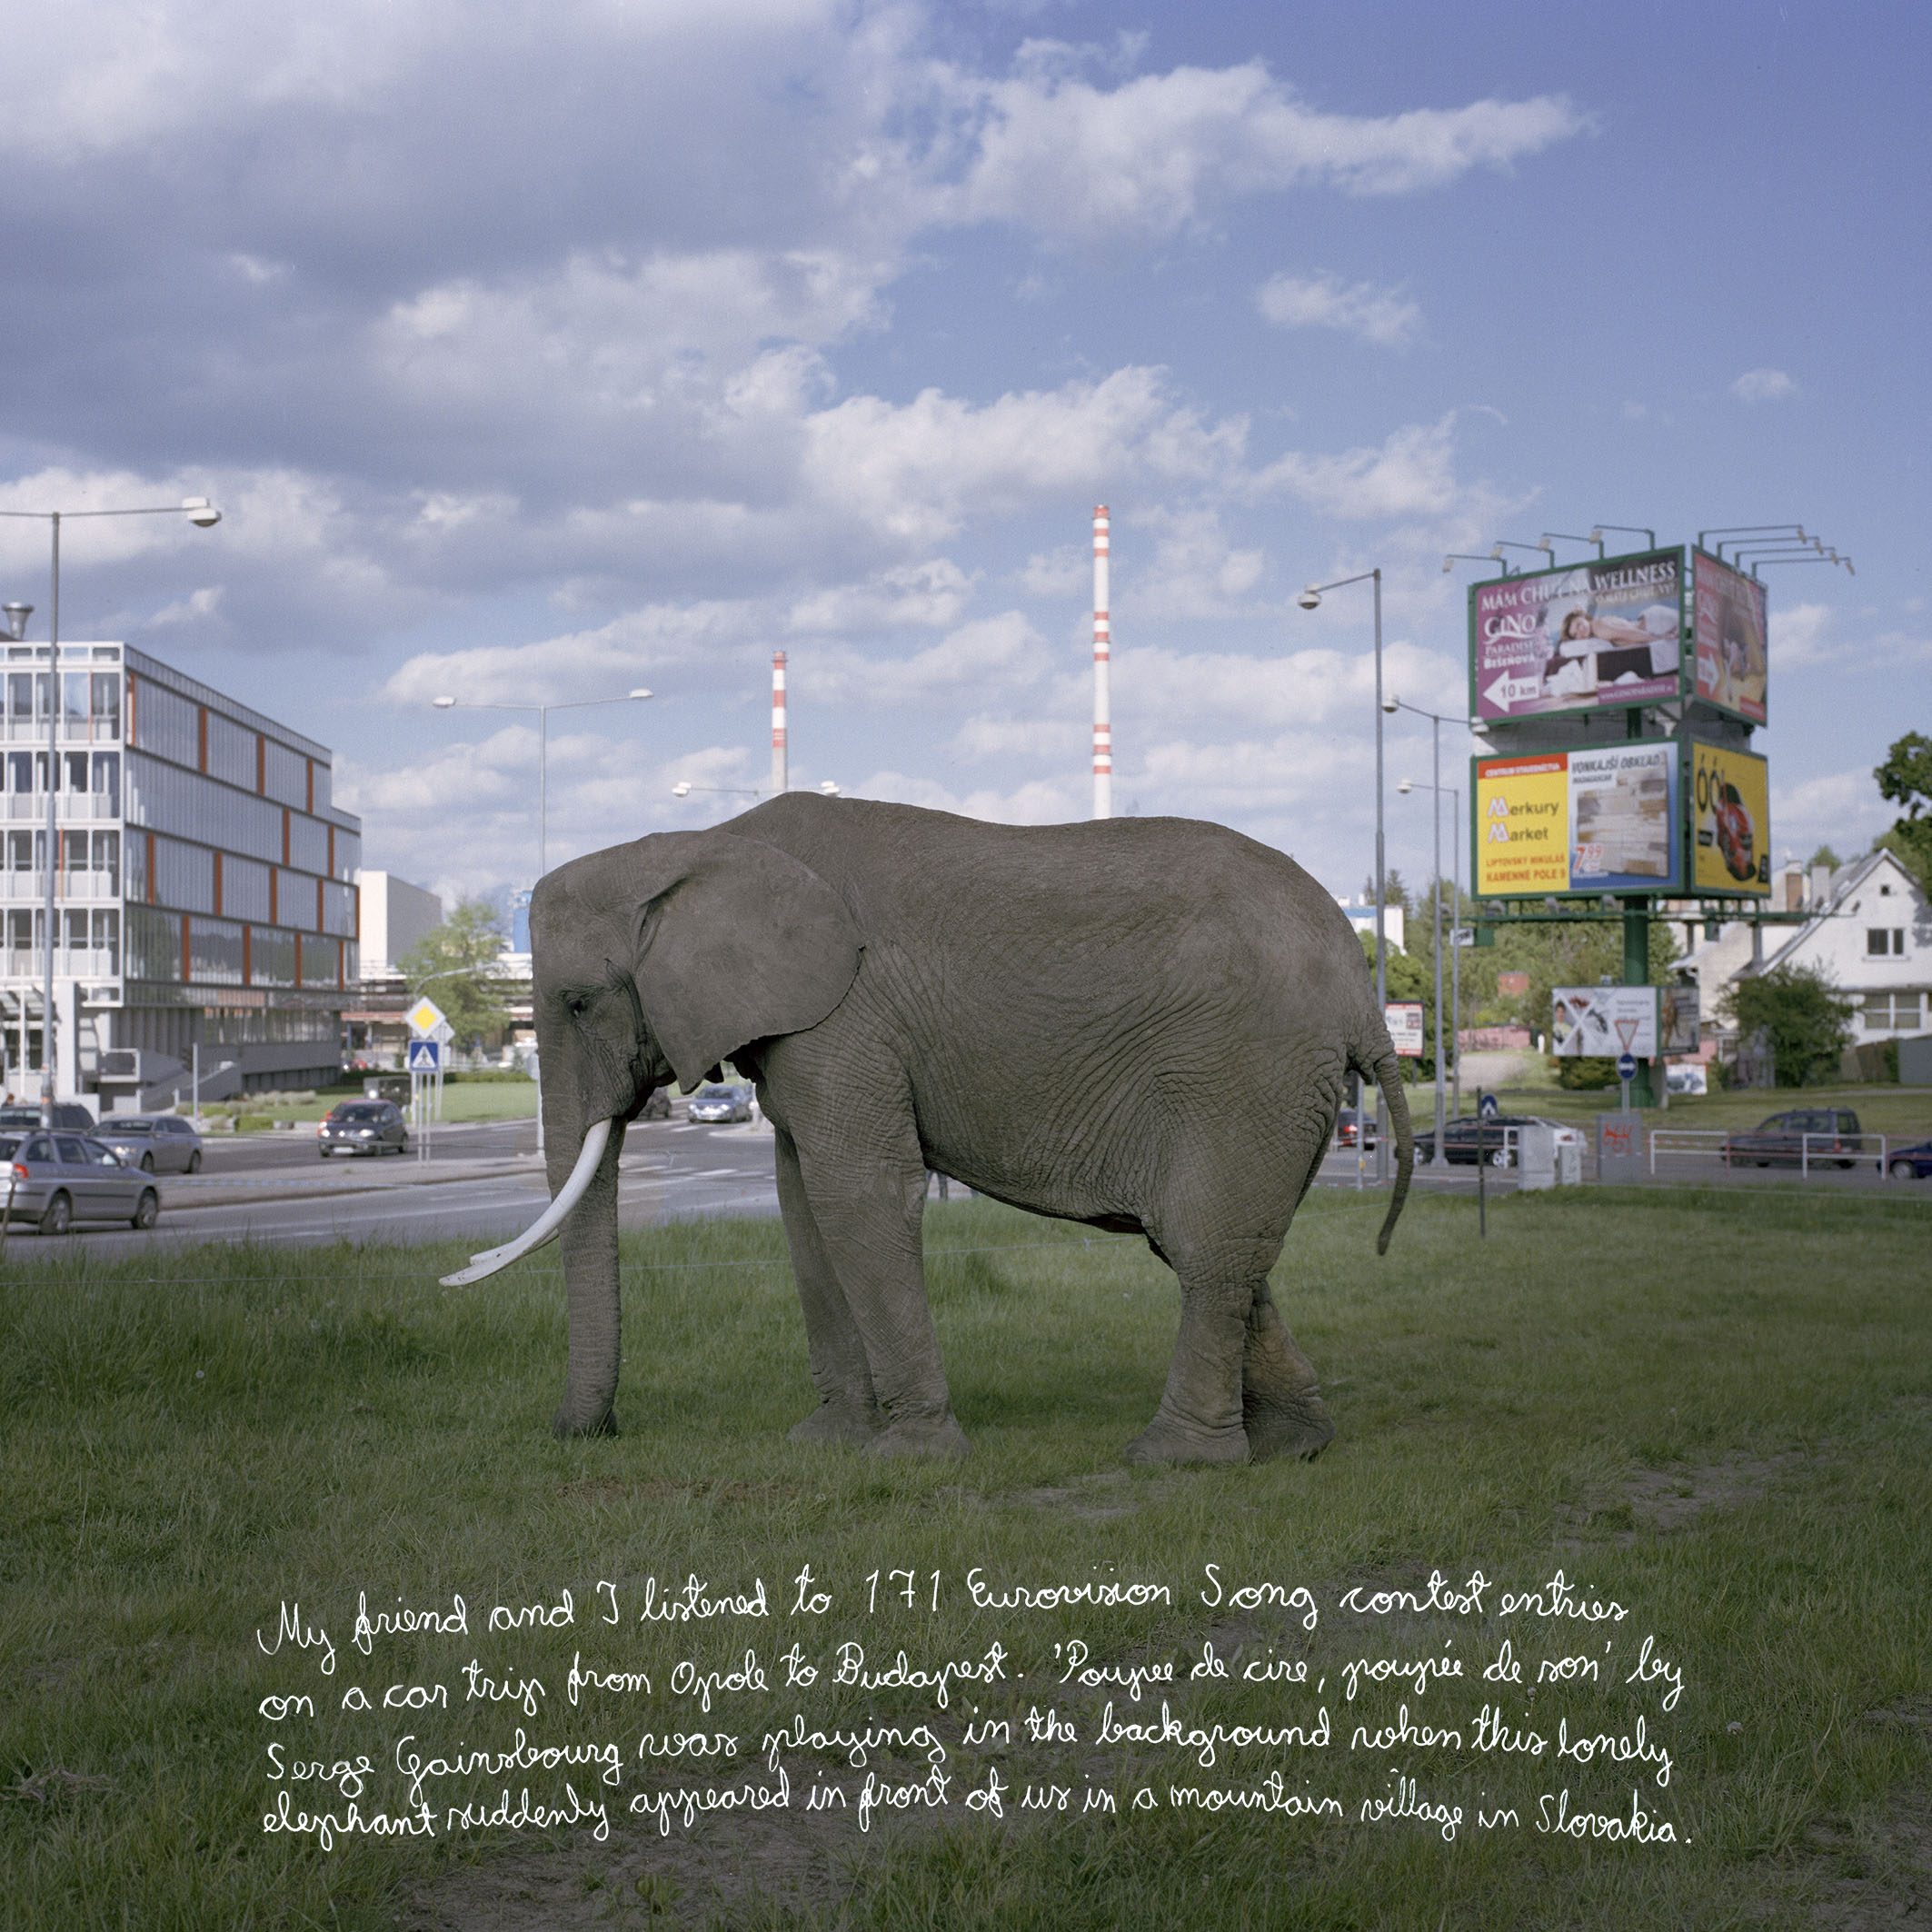 MÁM CHUŤ NA WELLNESS
GINO
PARADISE
BEŠEŇOVÁ
10 km
CENTRUM STAVEBNÍCTVA
VONKAJŠÍ OBKLAD
MADAGASCAR
Merkury
Market
7,99
LIPTOVSKÝ MIKULÁŠ
KAMENNÉ POLE 9
My friend and I listened to 171 Eurovision Song contest entries
on a car trip from Opole to Budapest. 'Poupee de cire, poupée de son' by
Serge Gainsbourg was playing in the background when this lonely
elephant suddenly appeared in front of us in a mountain village in Slovakia.